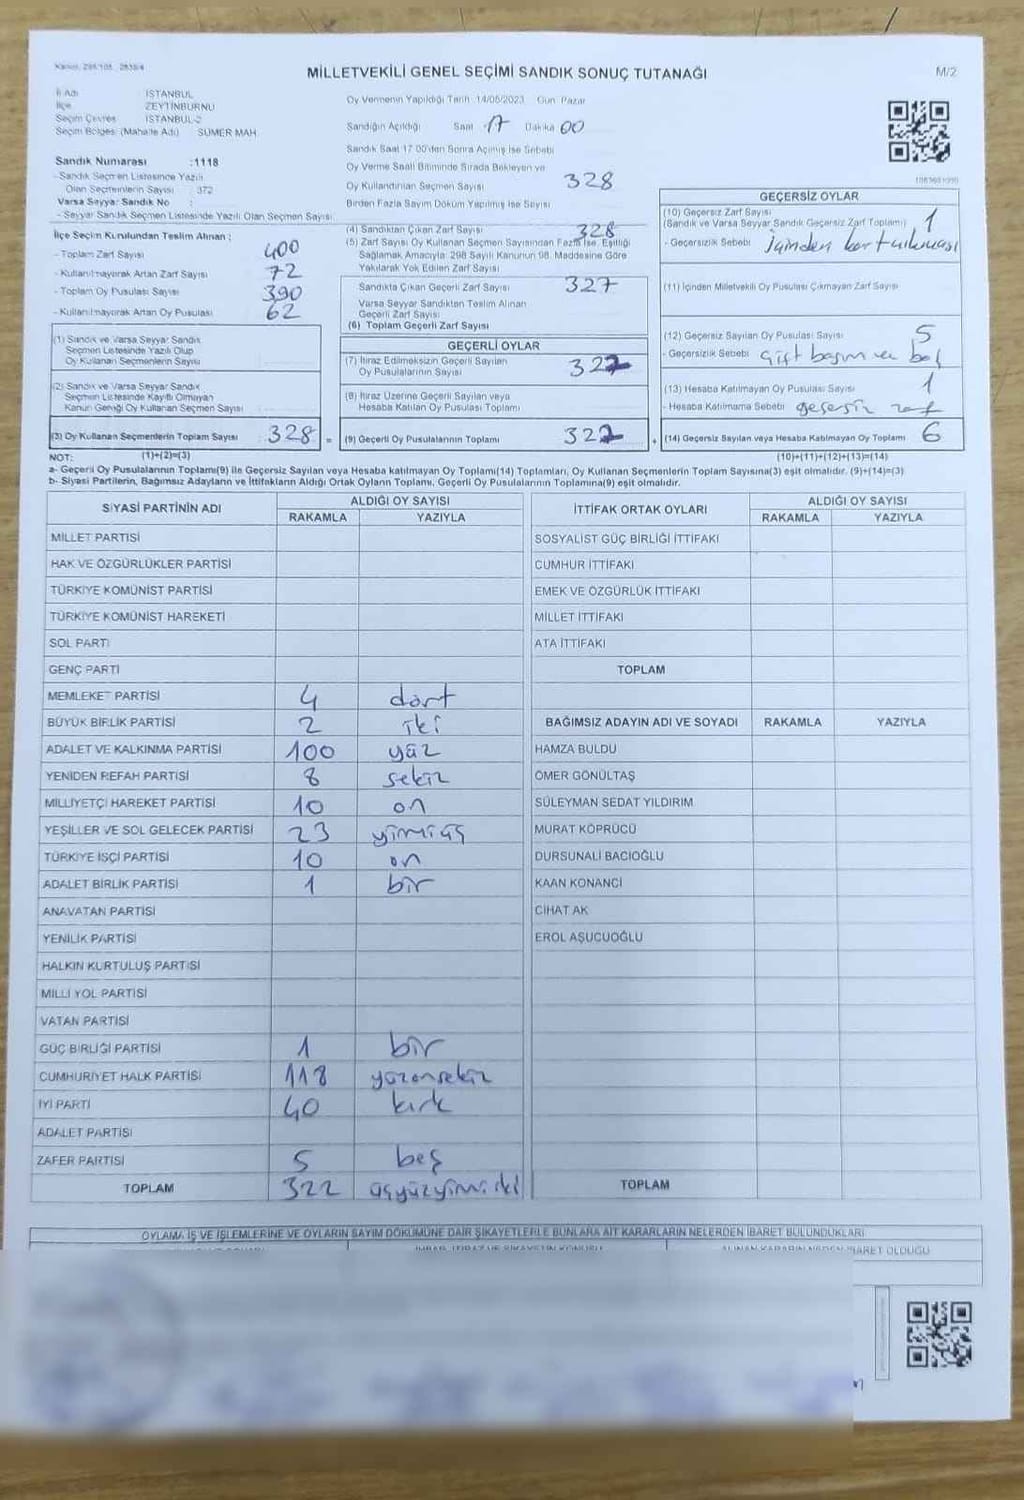 MİLLETVEKİLİ GENEL SEÇİMİ SANDIK SONUÇ TUTANAĞI
M/2
İl Adı İSTANBUL
İlçe ZEYTİNBURNU
Seçim Çevres İSTANBUL-2
Seçim Bölges (Mahalle Adı) SÜMER MAH.
Sandık Numarası :1118
- Sandık Seçmen Listesinde Yazılı
Olan Seçmenlerin Sayısı : 372
Varsa Seyyar Sandık No :
- Seyyar Sandık Seçmen Listesinde Yazılı Olan Seçmen Sayısı
İlçe Seçim Kurulundan Teslim Alınan :
- Toplam Zarf Sayısı 400
- Kullanılmayarak Artan Zarf Sayısı 72
- Toplam Oy Pusulası Sayısı 390
- Kullanılmayarak Artan Oy Pusulası 62
(1) Sandık ve Varsa Seyyar Sandık
Seçmen Listesinde Yazılı Olup
Oy Kullanan Seçmenlerin Sayısı
(2) Sandık ve Varsa Seyyar Sandık
Seçmen Listesinde Kayıtlı Olmayan
Kanun Gereği Oy Kullanan Seçmen Sayısı
(3) Oy Kullanan Seçmenlerin Toplam Sayısı 328 =
Oy Vermenin Yapıldığı Tarih 14/05/2023 Gün Pazar
Sandığın Açıldığı Saat 17 Dakika 00
Sandık Saat 17:00'den Sonra Açılmış İse Sebebi
Oy Verme Saati Bitiminde Sırada Bekleyen ve
Oy Kullandırılan Seçmen Sayısı 328
Birden Fazla Sayım Döküm Yapılmış İse Sayısı
(4) Sandıktan Çıkan Zarf Sayısı 328
(5) Zarf Sayısı Oy Kullanan Seçmen Sayısından Fazla İse, Eşitliği
Sağlamak Amacıyla 298 Sayılı Kanunun 98. Maddesine Göre
Yakılarak Yok Edilen Zarf Sayısı
Sandıkta Çıkan Geçerli Zarf Sayısı 327
Varsa Seyyar Sandıktan Teslim Alınan
Geçerli Zarf Sayısı
(6) Toplam Geçerli Zarf Sayısı
GEÇERLİ OYLAR
(7) İtiraz Edilmeksizin Geçerli Sayılan
Oy Pusulalarının Sayısı 322
(8) İtiraz Üzerine Geçerli Sayılan veya
Hesaba Katılan Oy Pusulası Toplamı
(9) Geçerli Oy Pusulalarının Toplamı 322 +
GEÇERSİZ OYLAR
(10) Geçersiz Zarf Sayısı
(Sandık ve Varsa Seyyar Sandık Geçersiz Zarf Toplamı) 1
- Geçersizlik Sebebi içinden kart çıkması
(11) İçinden Milletvekili Oy Pusulası Çıkmayan Zarf Sayısı
(12) Geçersiz Sayılan Oy Pusulası Sayısı 5
- Geçersizlik Sebebi Çift basım ve boş
(13) Hesaba Katılmayan Oy Pusulası Sayısı 1
- Hesaba Katılmama Sebebi geçersiz zarf
(14) Geçersiz Sayılan veya Hesaba Katılmayan Oy Toplamı 6
NOT: (1)+(2)=(3) (10)+(11)+(12)+(13)=(14)
a- Geçerli Oy Pusulalarının Toplamı(9) ile Geçersiz Sayılan veya Hesaba katılmayan Oy Toplamı(14) Toplamları, Oy Kullanan Seçmenlerin Toplam Sayısına(3) eşit olmalıdır. (9)+(14)=(3)
b- Siyasi Partilerin, Bağımsız Adayların ve İttifakların Aldığı Ortak Oyların Toplamı, Geçerli Oy Pusulalarının Toplamına(9) eşit olmalıdır.
SİYASİ PARTİNİN ADI ALDIĞI OY SAYISI
RAKAMLA YAZIYLA
MİLLET PARTİSİ
HAK VE ÖZGÜRLÜKLER PARTİSİ
TÜRKİYE KOMÜNİST PARTİSİ
TÜRKİYE KOMÜNİST HAREKETİ
SOL PARTİ
GENÇ PARTİ
MEMLEKET PARTİSİ 4 dört
BÜYÜK BİRLİK PARTİSİ 2 iki
ADALET VE KALKINMA PARTİSİ 100 yüz
YENİDEN REFAH PARTİSİ 8 sekiz
MİLLİYETÇİ HAREKET PARTİSİ 10 on
YEŞİLLER VE SOL GELECEK PARTİSİ 23 yirmiüç
TÜRKİYE İŞÇİ PARTİSİ 10 on
ADALET BİRLİK PARTİSİ 1 bir
ANAVATAN PARTİSİ
YENİLİK PARTİSİ
HALKIN KURTULUŞ PARTİSİ
MİLLİ YOL PARTİSİ
VATAN PARTİSİ
GÜÇ BİRLİĞİ PARTİSİ 1 bir
CUMHURİYET HALK PARTİSİ 118 yüzonsekiz
İYİ PARTİ 40 kırk
ADALET PARTİSİ
ZAFER PARTİSİ 5 beş
TOPLAM 322 üçyüzyirmiiki
İTTİFAK ORTAK OYLARI ALDIĞI OY SAYISI
RAKAMLA YAZIYLA
SOSYALİST GÜÇ BİRLİĞİ İTTİFAKI
CUMHUR İTTİFAKI
EMEK VE ÖZGÜRLÜK İTTİFAKI
MİLLET İTTİFAKI
ATA İTTİFAKI
TOPLAM
BAĞIMSIZ ADAYIN ADI VE SOYADI RAKAMLA YAZIYLA
HAMZA BULDU
ÖMER GÖNÜLTAŞ
SÜLEYMAN SEDAT YILDIRIM
MURAT KÖPRÜCÜ
DURSUNALİ BACIOĞLU
KAAN KONANCİ
CİHAT AK
EROL AŞUCUOĞLU
TOPLAM
OYLAMA İŞ VE İŞLEMLERİNE VE OYLARIN SAYIM DÖKÜMÜNE DAİR ŞİKAYETLERLE BUNLARA AİT KARARLARIN NELERDEN İBARET BULUNDUKLARI